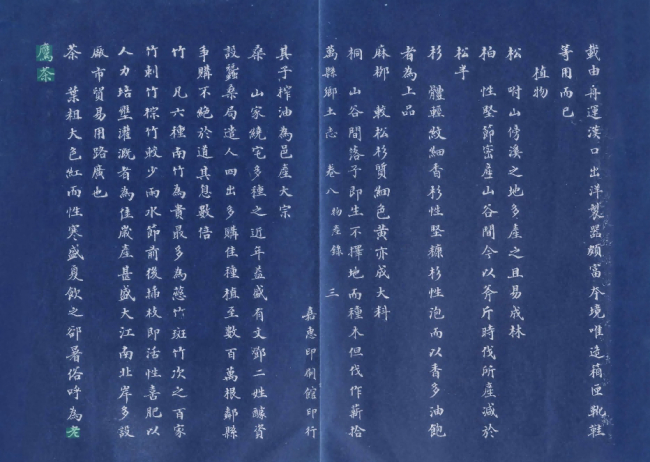 載由舟運漢口出洋製器頗富本境唯造箱匣靴鞋
等用而已
植物
松　附山傍溪之地多產之且易成林
柏　性堅節密產山谷間今以斧斤時伐所產減於
松半
杉　體輕紋細香杉性堅糠杉性泡而以香多油飽
者為上品
麻柳　較松杉質細色黃亦成大料
桐　山谷間落子即生不擇地而種木但伐作薪拾
萬縣鄉土志　卷八　物產錄　三
嘉惠印刷館印行
其子搾油為邑產大宗
桑　山家繞宅多種之近年益盛有文鄧二姓醵資
設蠶桑局遣人四出多購佳種植至數百萬根鄰縣
爭購不絕於道其息數倍
竹　凡六種南竹為貴最多為慈竹斑竹次之百家
竹刺竹棕竹較少雨水節前後插枝即活性喜肥以
人力培壅灌溉者為佳歲產甚盛大江南北岸多設
廠市貿易用路廣也
茶　葉粗大色紅而性寒盛夏飲之卻暑俗呼為老
鷹茶